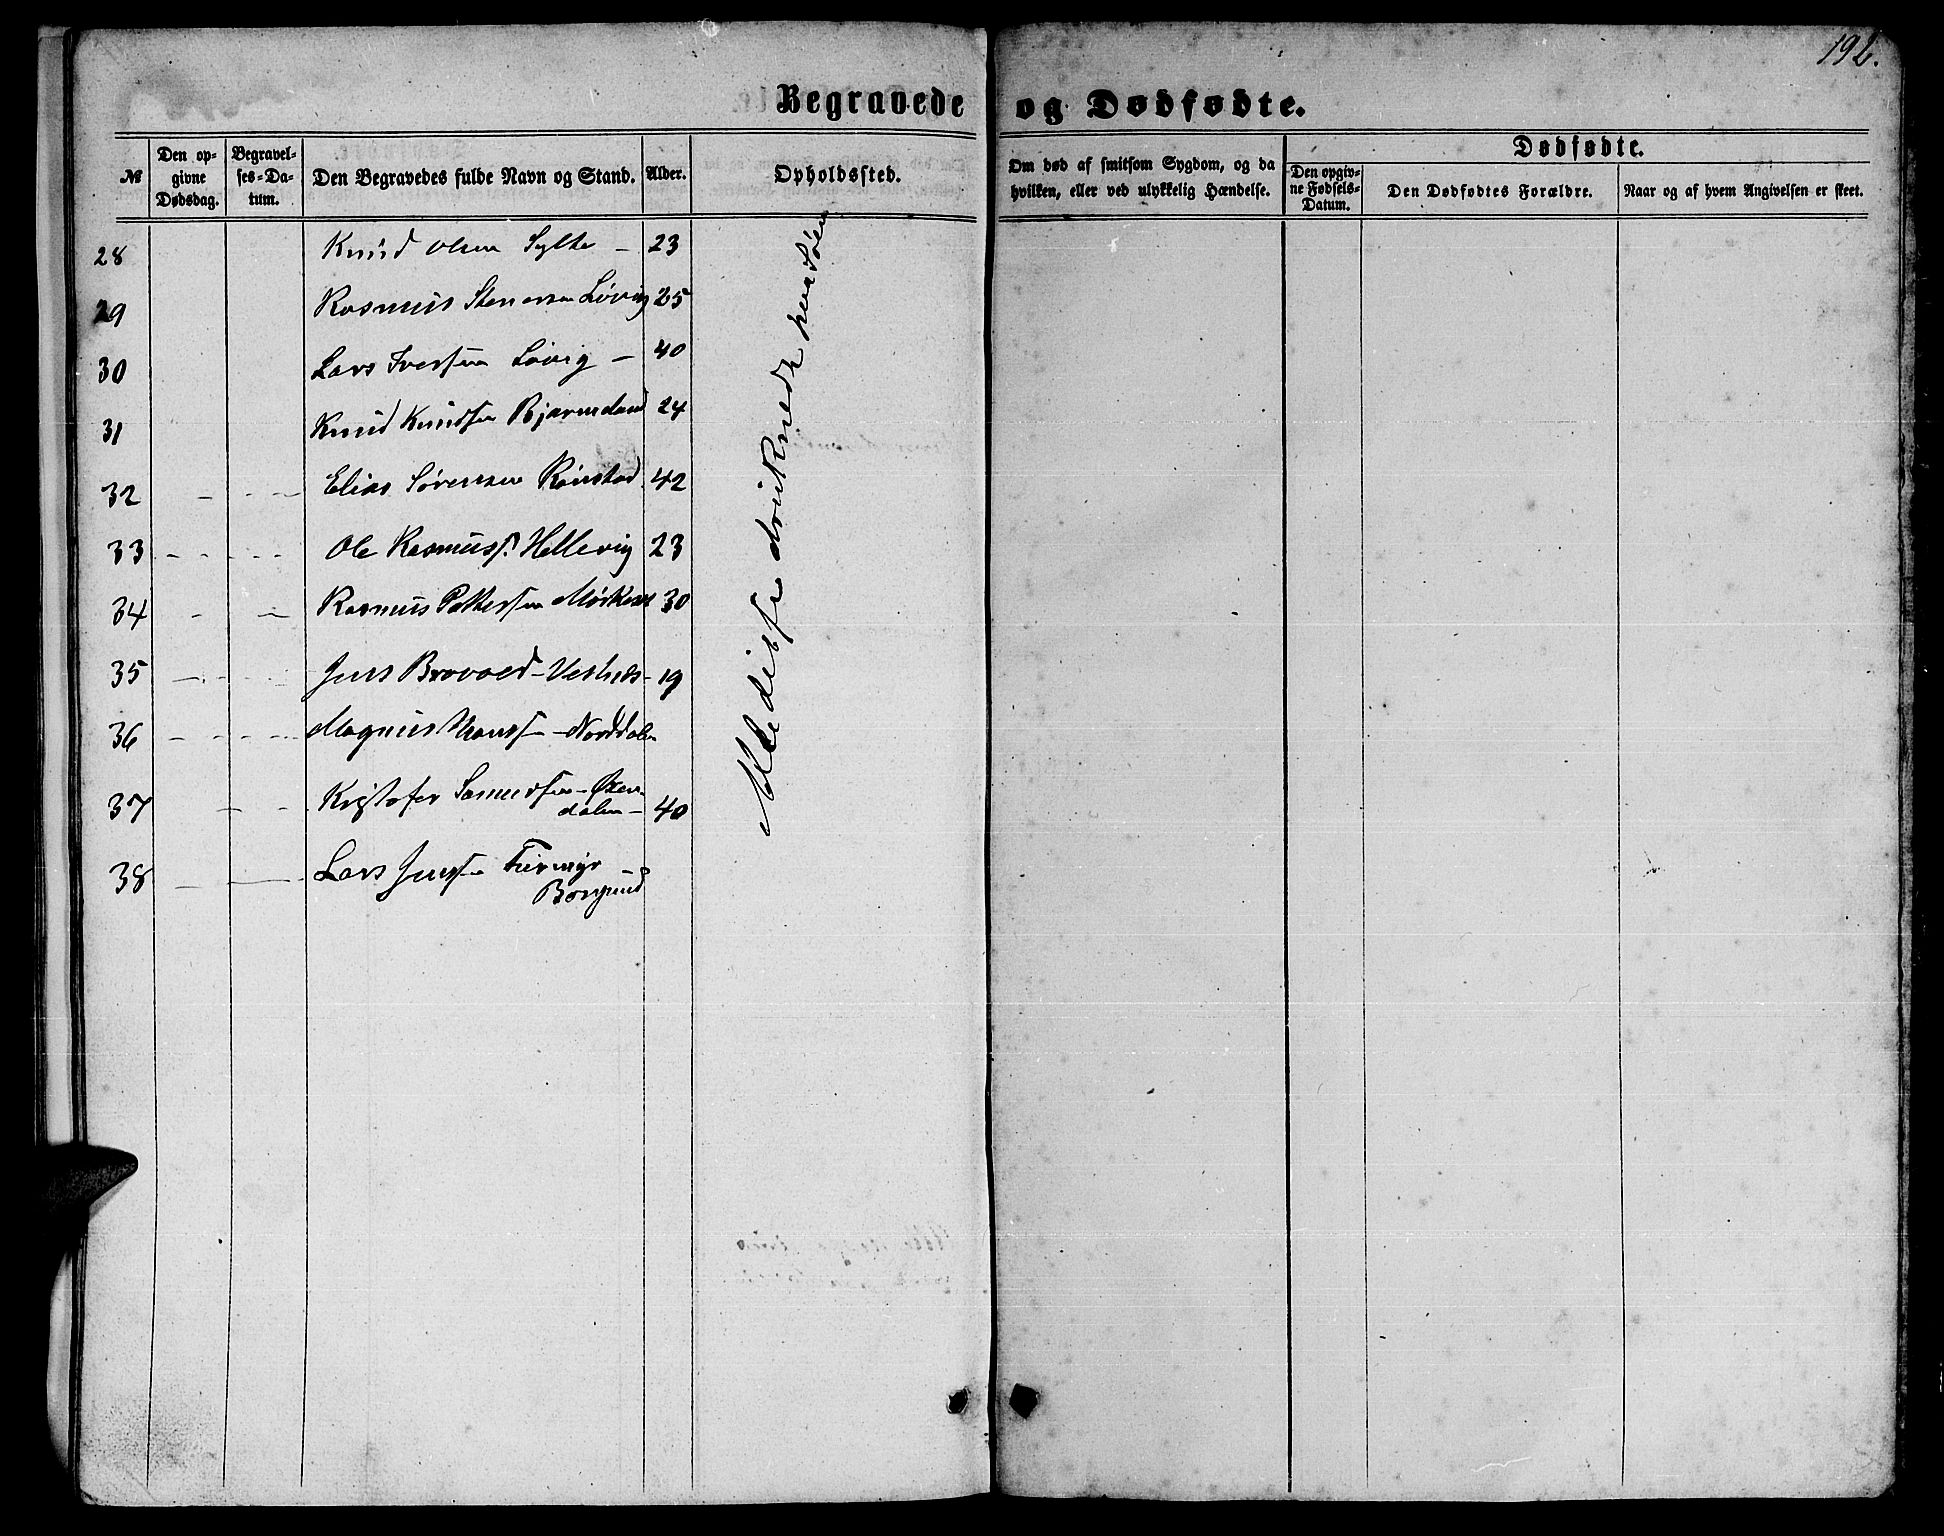 192.
Begravede og Dødfødte.
№
Den opgivne Dødsdag.
Begravelses-Datum.
Den Begravedes fulde Navn og Stand.
Alder.
Opholdssted.
Om død af smitsom Sygdom, og da hvilken, eller ved ulykkelig Hændelse.
Dødfødte.
Den opgivne Fødsels-Datum.
Den Dødfødtes Forældre.
Naar og af hvem Angivelsen er skeet.
28 Knud Olsen Sylte – 23
29 Rasmus Stenersen Løvig 25
30 Lars Iversen Løvig – 40
31 Knud Knudsen Bjørneland 24
32 - - - - Elias Sørensen Rønstad 42
33 - - - - Ole Rasmuss. Hellevig 23
34 - - Rasmus Pettersen 30
35 - - - - Jens Brovold – Vestnes – 19
36 - - - - Magnus Hanssen – Norddalen
37 - - Kristofer – Øxen-
dalen – 40
38 - - Lars Jenssen –
Borgund
Alle disse druknede paa Søen